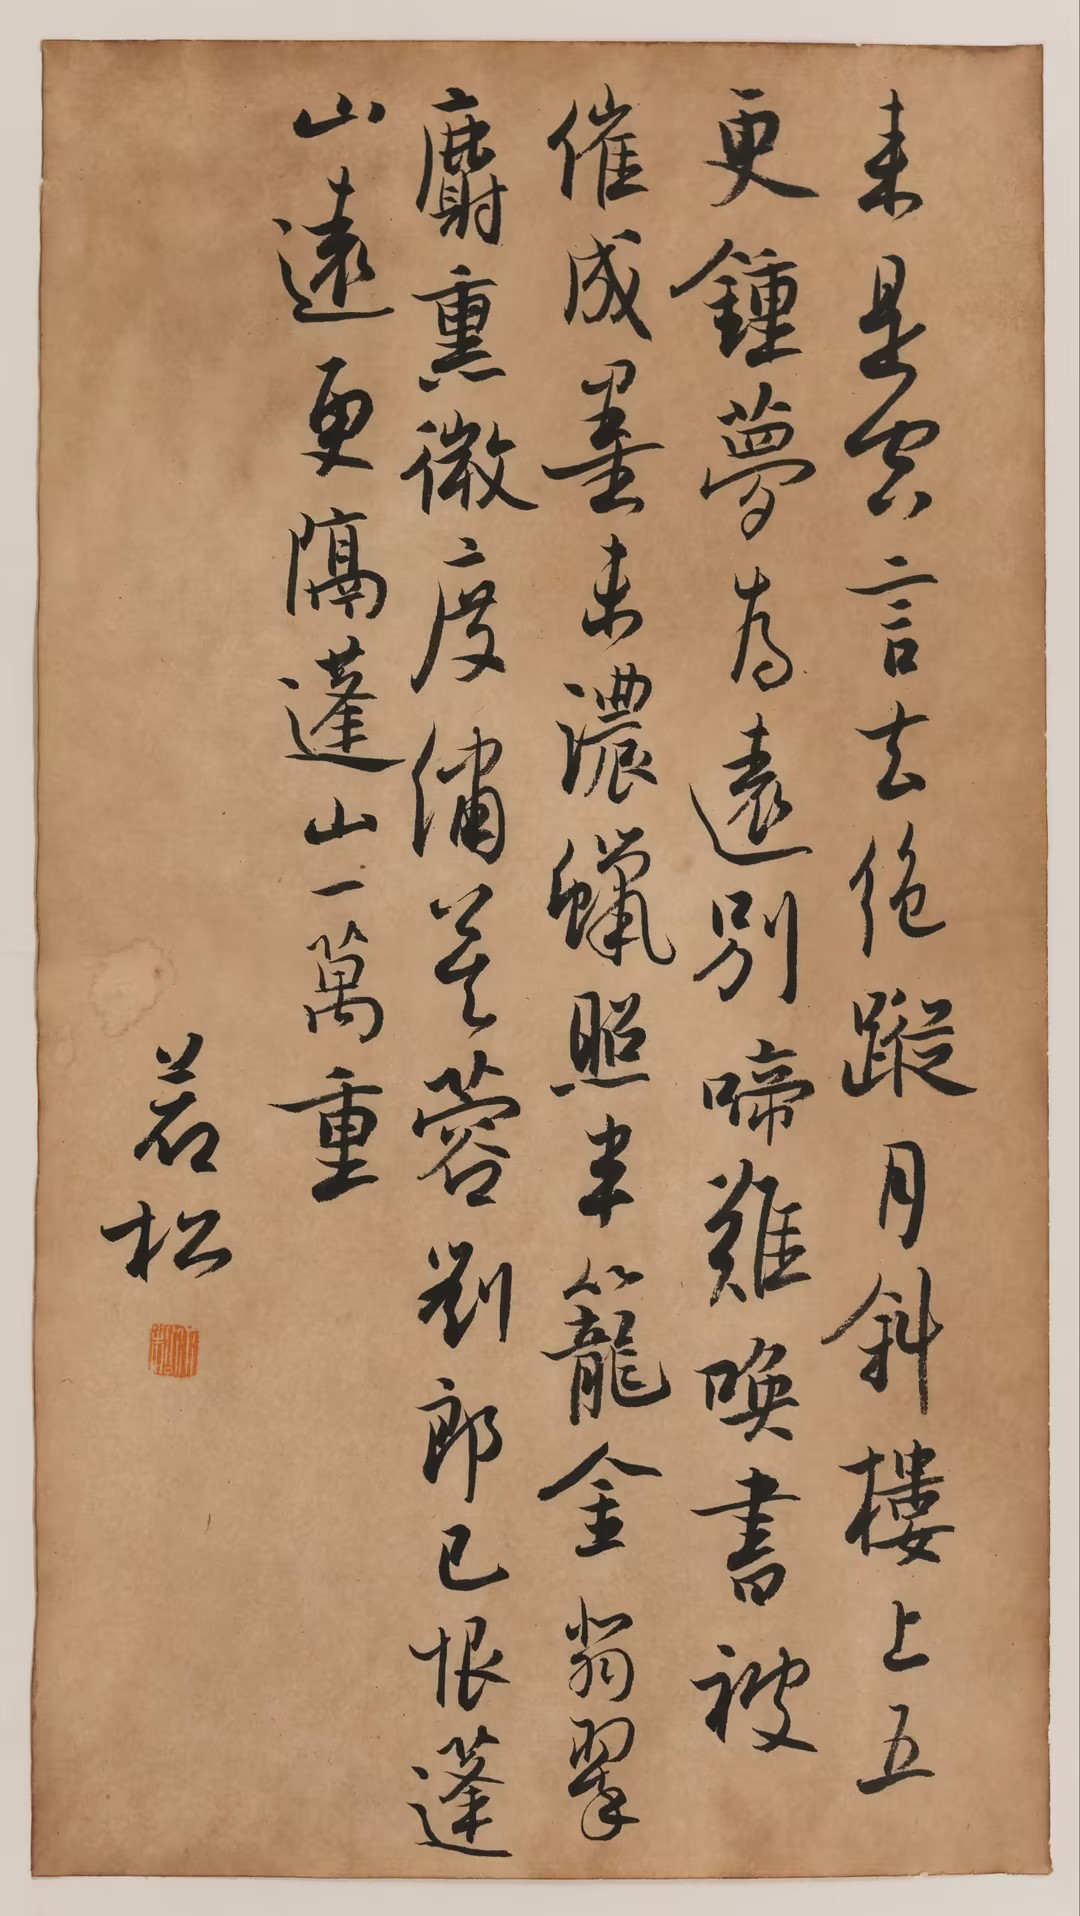 来是空言去绝蹤月斜樓上五
更鍾夢為遠别啼難喚書被
催成墨未濃蠟照半籠金翡翠
麝熏微度繡芙蓉劉郎已恨蓬
山遠更隔蓬山一萬重
若松